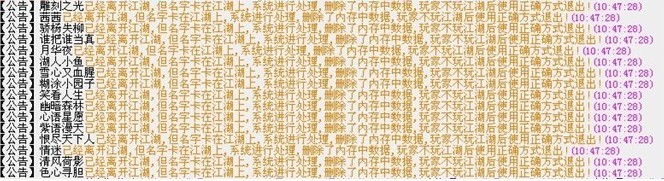 【公告】雕刻之光已经离开江湖,但名字卡在江湖上,系统进行处理,删除了内存中数据,玩家不玩江湖后使用正确方式退出!(10:47:28)
【公告】茜茜已经离开江湖,但名字卡在江湖上,系统进行处理,删除了内存中数据,玩家不玩江湖后使用正确方式退出!(10:47:28)
【公告】骄杨失柳已经离开江湖,但名字卡在江湖上,系统进行处理,删除了内存中数据,玩家不玩江湖后使用正确方式退出!(10:47:28)
【公告】谁把谁当真已经离开江湖,但名字卡在江湖上,系统进行处理,删除了内存中数据,玩家不玩江湖后使用正确方式退出!(10:47:28)
【公告】月华夜已经离开江湖,但名字卡在江湖上,系统进行处理,删除了内存中数据,玩家不玩江湖后使用正确方式退出!(10:47:28)
【公告】湖人小鱼已经离开江湖,但名字卡在江湖上,系统进行处理,删除了内存中数据,玩家不玩江湖后使用正确方式退出!(10:47:28)
【公告】雪心又血腥已经离开江湖,但名字卡在江湖上,系统进行处理,删除了内存中数据,玩家不玩江湖后使用正确方式退出!(10:47:28)
【公告】糊涂小园子已经离开江湖,但名字卡在江湖上,系统进行处理,删除了内存中数据,玩家不玩江湖后使用正确方式退出!(10:47:28)
【公告】笑看人生已经离开江湖,但名字卡在江湖上,系统进行处理,删除了内存中数据,玩家不玩江湖后使用正确方式退出!(10:47:28)
【公告】幽暗森林已经离开江湖,但名字卡在江湖上,系统进行处理,删除了内存中数据,玩家不玩江湖后使用正确方式退出!(10:47:28)
【公告】心语星愿已经离开江湖,但名字卡在江湖上,系统进行处理,删除了内存中数据,玩家不玩江湖后使用正确方式退出!(10:47:28)
【公告】紫语漫天已经离开江湖,但名字卡在江湖上,系统进行处理,删除了内存中数据,玩家不玩江湖后使用正确方式退出!(10:47:28)
【公告】恨尽天下人已经离开江湖,但名字卡在江湖上,系统进行处理,删除了内存中数据,玩家不玩江湖后使用正确方式退出!(10:47:28)
【公告】情迷已经离开江湖,但名字卡在江湖上,系统进行处理,删除了内存中数据,玩家不玩江湖后使用正确方式退出!(10:47:28)
【公告】清风荷影已经离开江湖,但名字卡在江湖上,系统进行处理,删除了内存中数据,玩家不玩江湖后使用正确方式退出!(10:47:28)
【公告】色心寻胆已经离开江湖,但名字卡在江湖上,系统进行处理,删除了内存中数据,玩家不玩江湖后使用正确方式退出!(10:47:28)